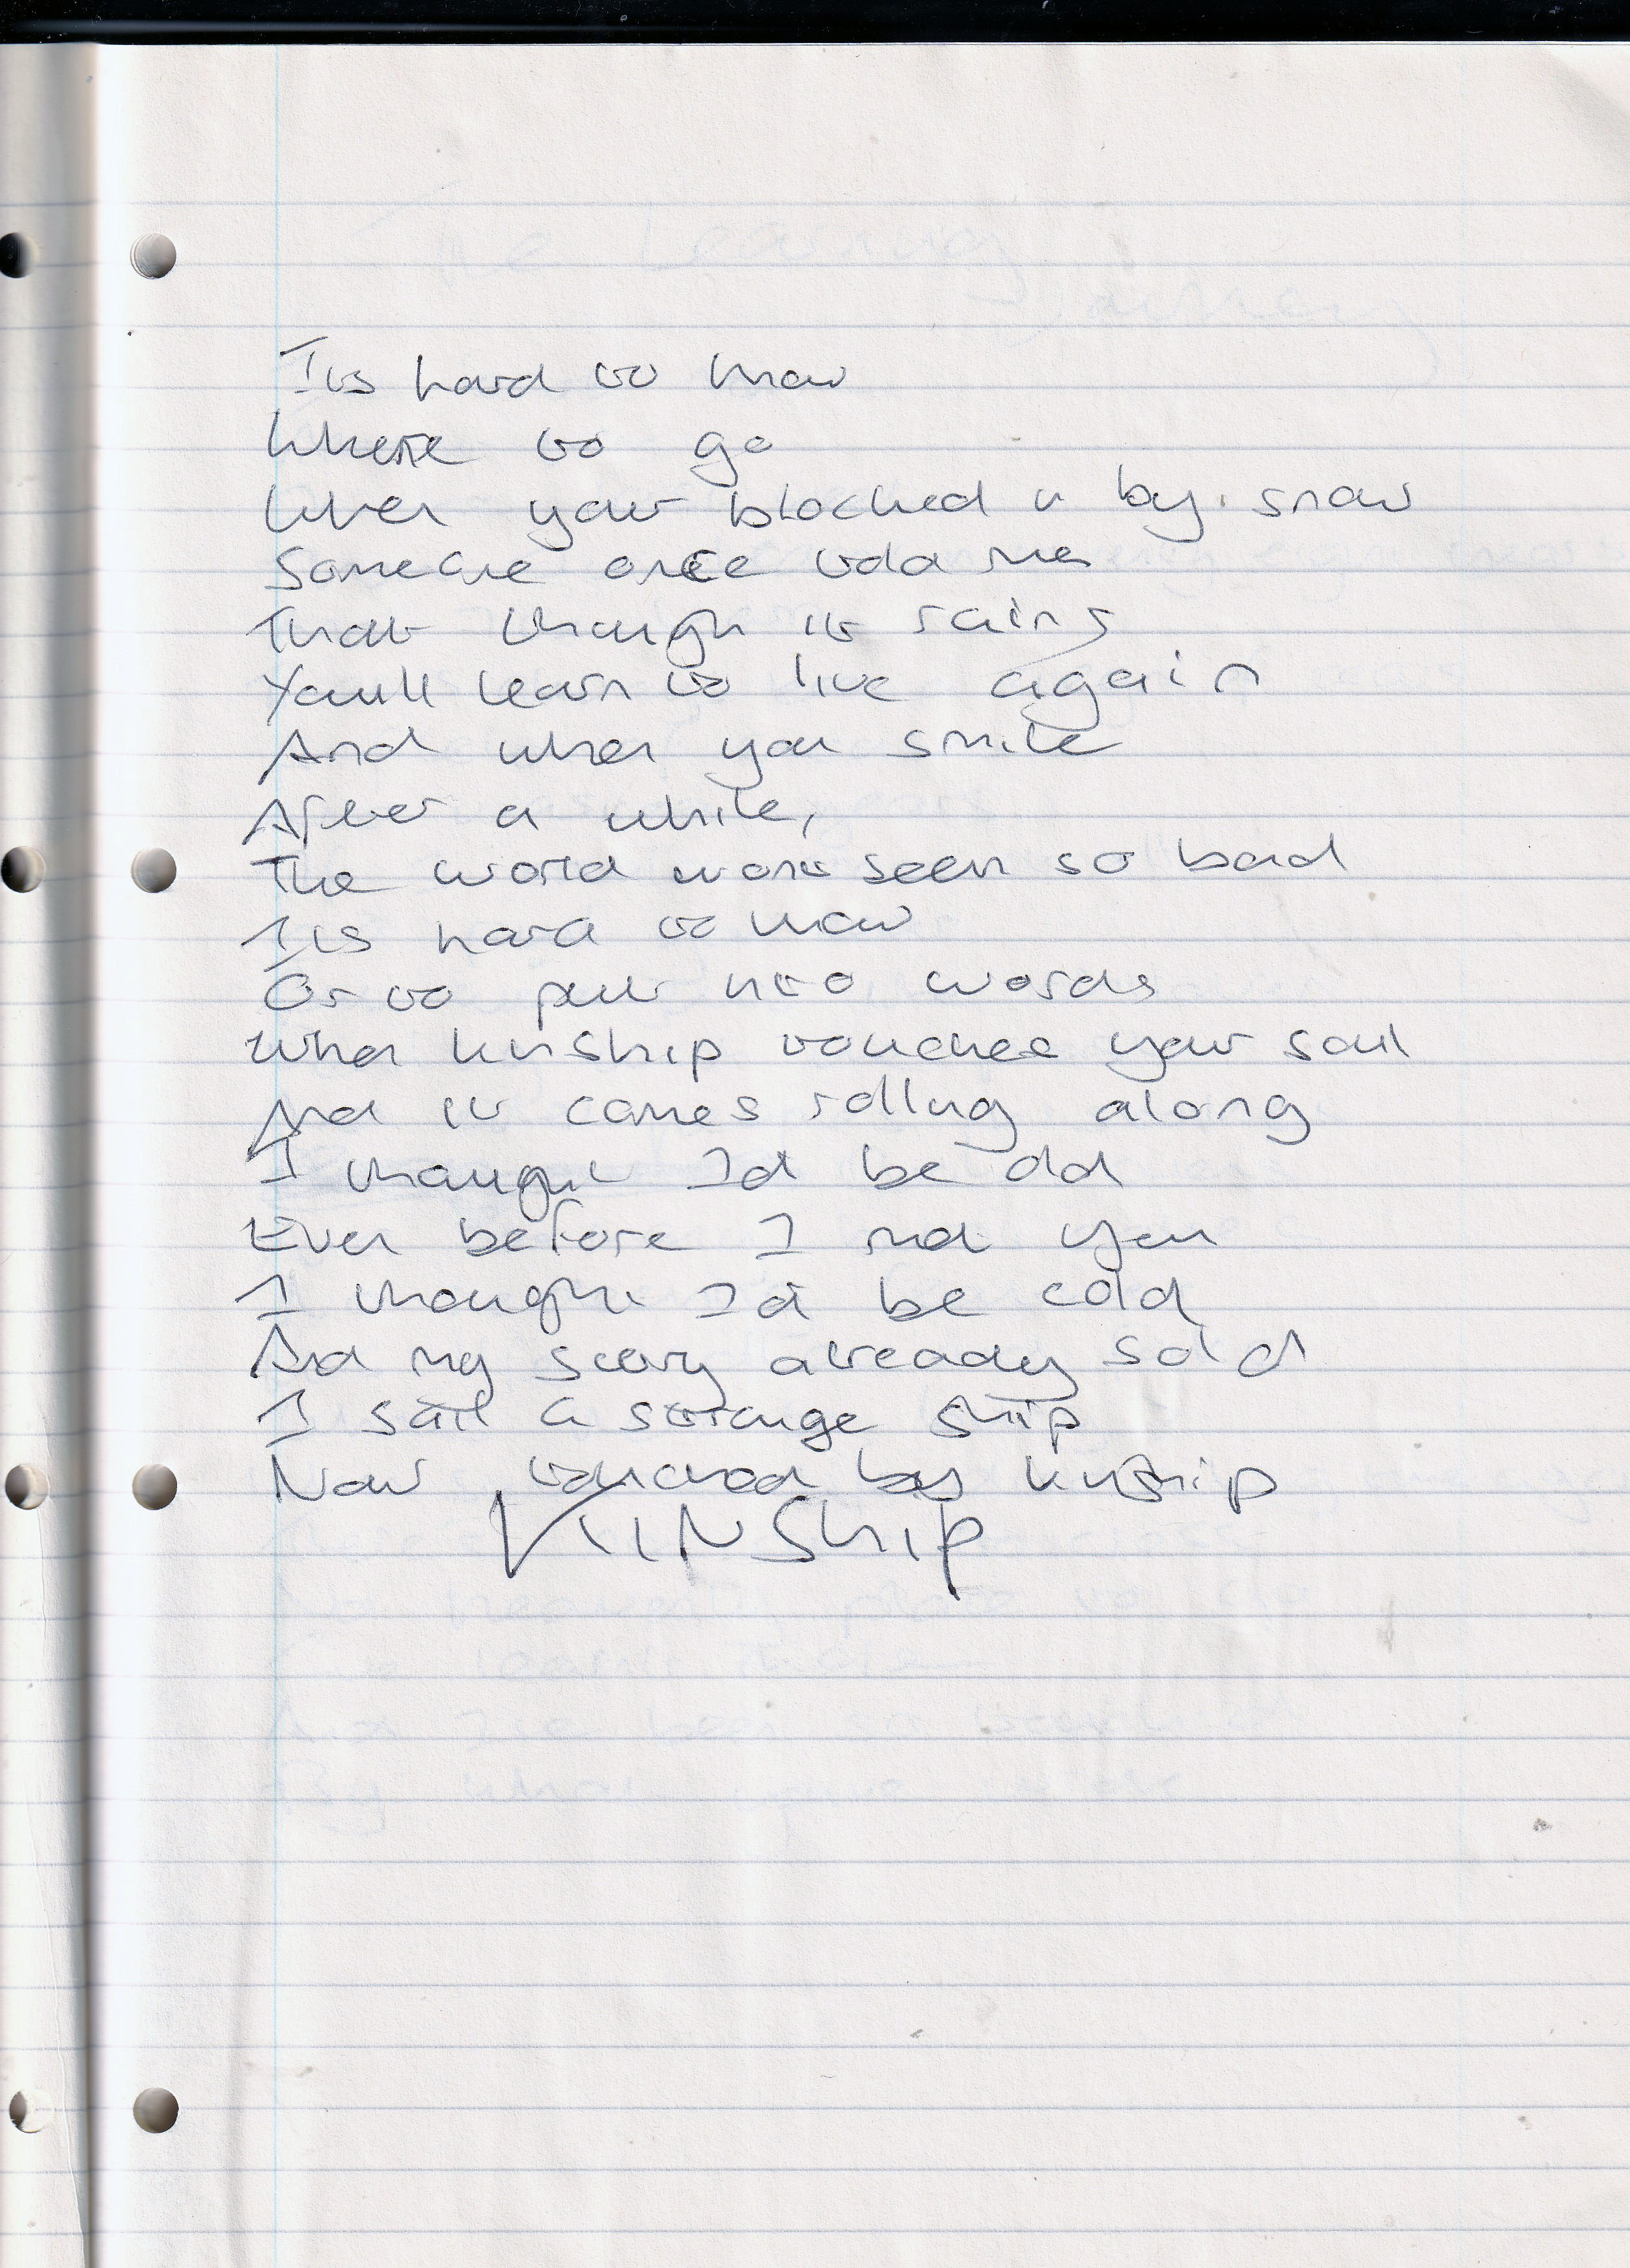 Its hard to know
Where to go
When your blocked in by snow
Someone once told me
That though it rains
You'll learn to live again
And when you smile
After a while,
The world wont seem so bad
Its hard to know
Or to put into words
When kinship touches your soul
And it comes rolling along
I thought Id be old
Even before I met you
I thought Id be cold
And my story already sold
I sail a strange ship
Now touched by kinship
KINShip